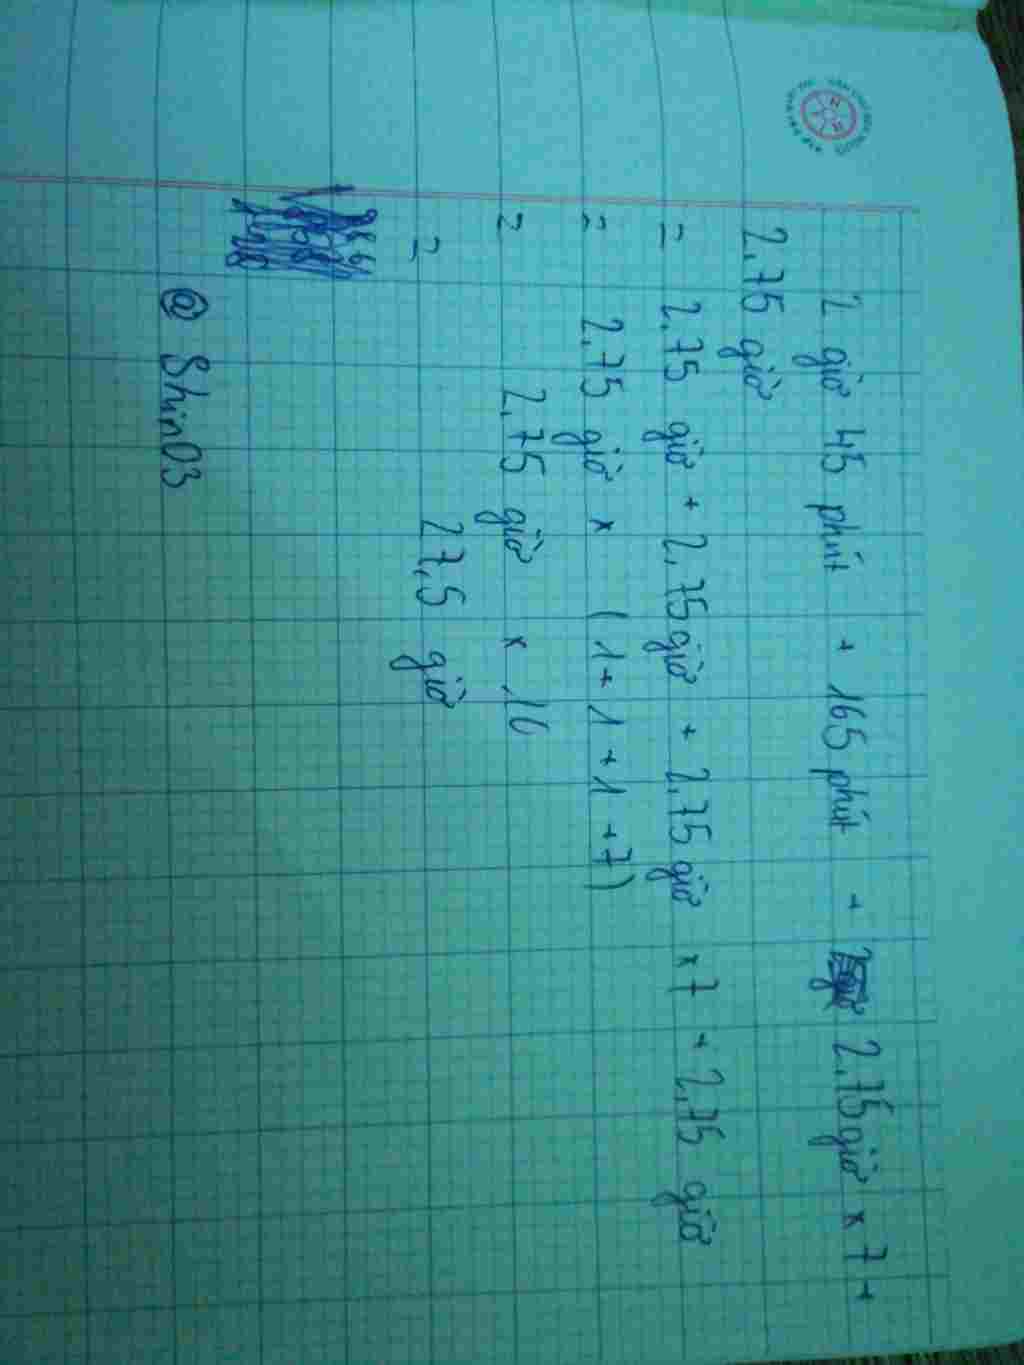 2 giờ 45 phút + 165 phút + 2,75 giờ x 7 +
2,75 giờ
= 2,75 giờ + 2,75 giờ + 2,75 giờ x 7 + 2,75 giờ
= 2,75 giờ x (1 + 1 + 1 + 7)
= 2,75 giờ x 10
= 27,5 giờ
@ Shin03